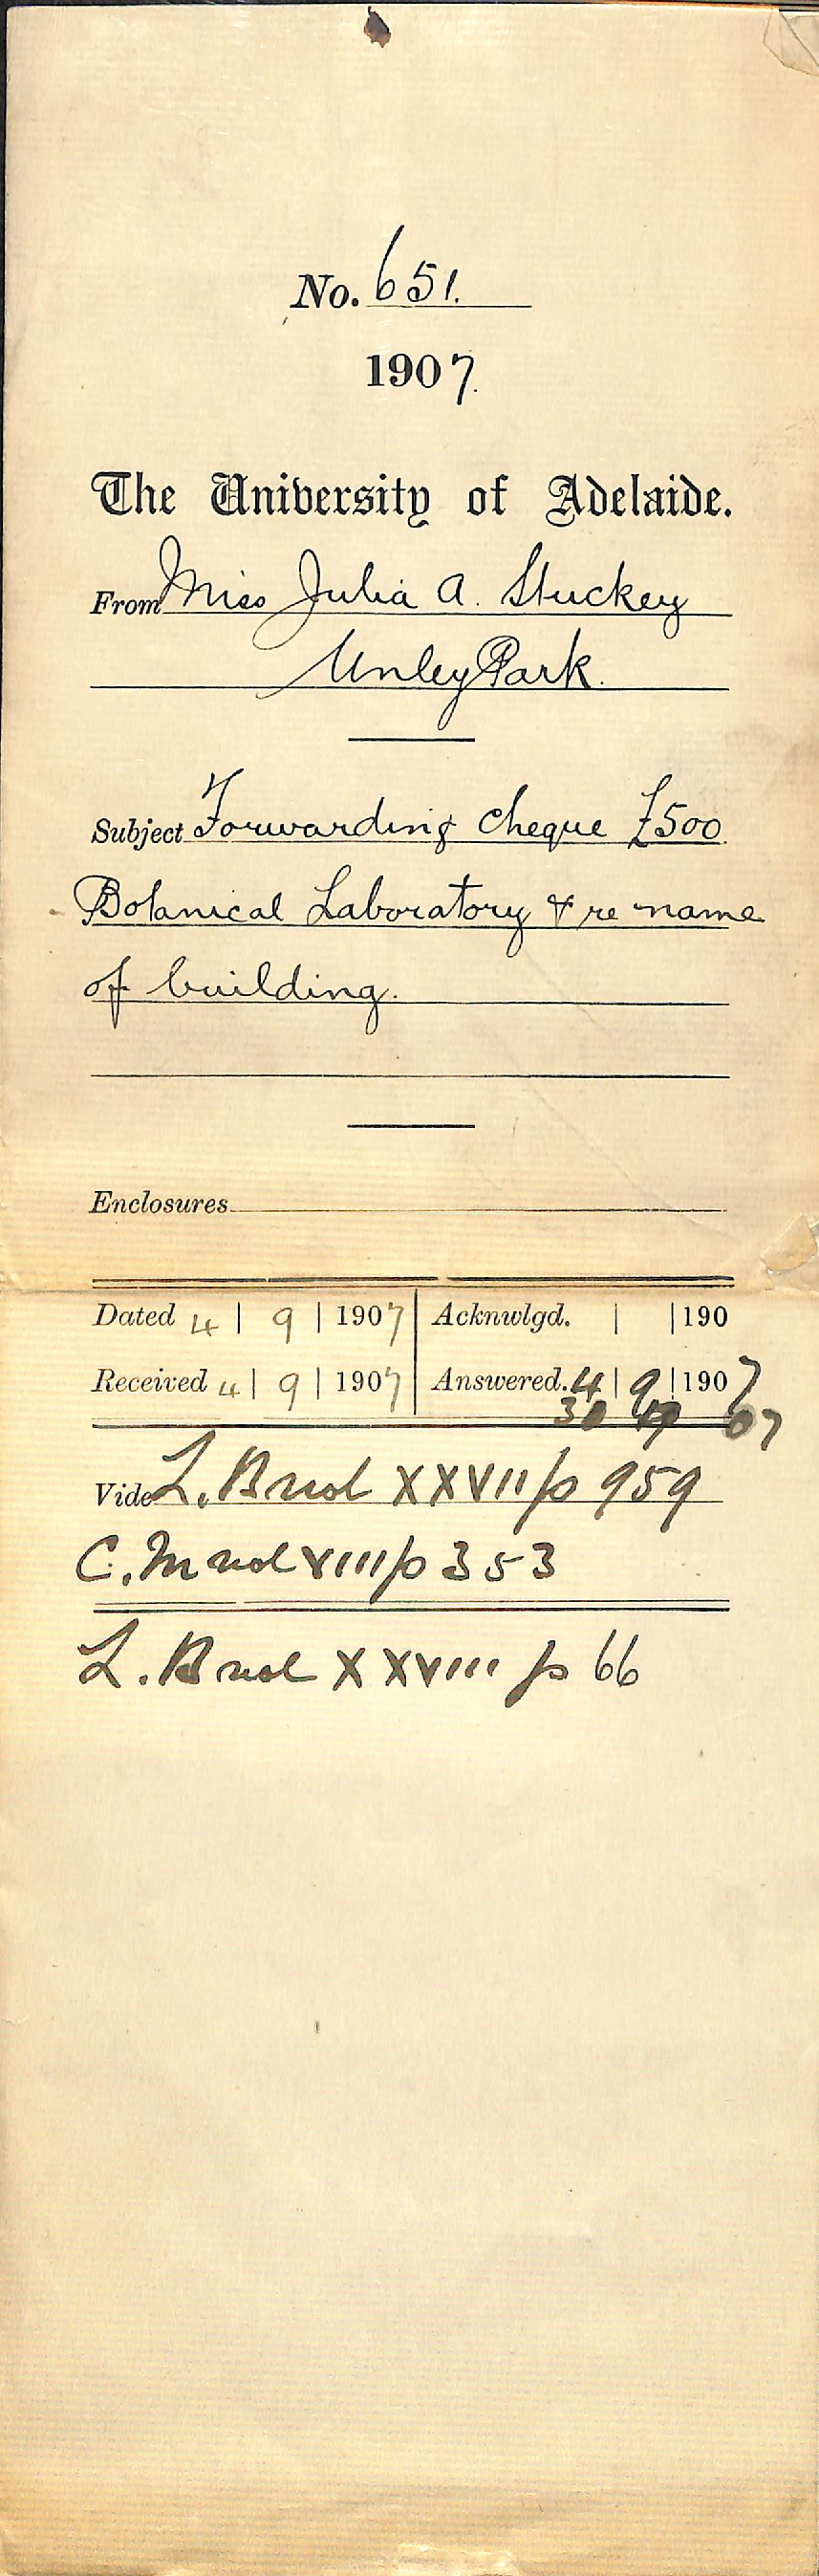 No. 651.
1907.
The University of Adelaide.
From Miss Julia A. Stuckey
Unley Park.
Subject Forwarding cheque £500
Botanical Laboratory & re name
of building.
Enclosures
Dated 4 | 9 | 1907 Acknwlgd. | | 190
Received 4 | 9 | 1907 Answered. 4 | 9 | 1907
30 07
Vide L. B vol XXVII p 959
C. M vol VIII p 353
L. B vol XXVIII p 66